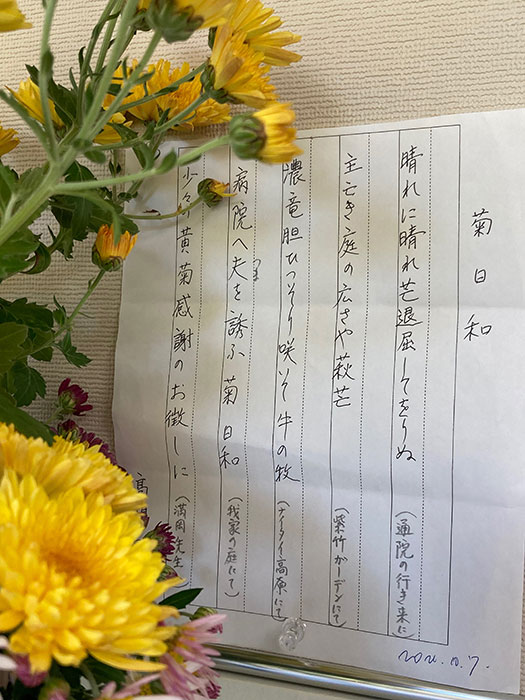 菊日和
晴れに晴れ芒退屈してをりぬ
(通院の行き来に)
主亡き庭の広さや萩芒
(紫竹ガーデンにて)
濃竜胆ひっそり咲いて牛の牧
(ナイタイ高原にて)
病院へ夫を誘ふ菊日和
つま
(我家の庭にて)
少々の黄菊感謝のお徴しに
(満岡先生
高